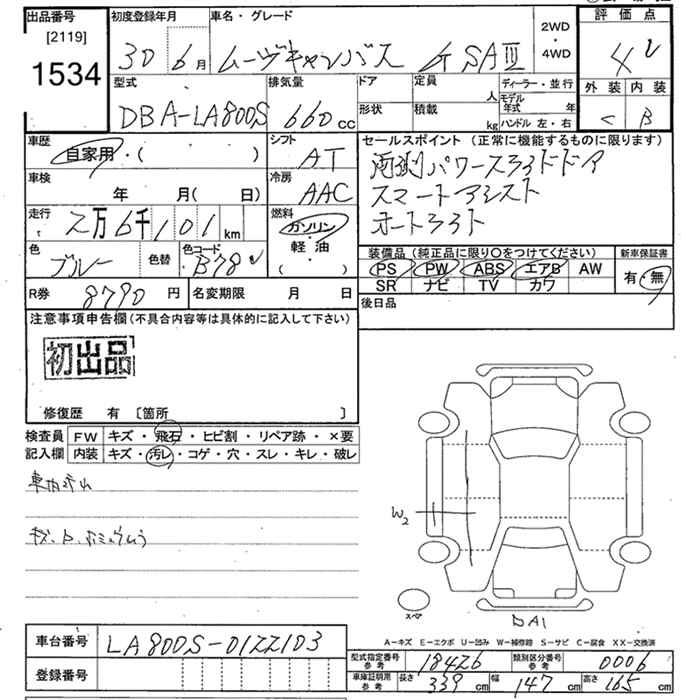 出品番号 初度登録年月 車名・グレード 2WD・4WD 評価点
[2119]
1534
30 6月 ムーヴキャンバス G SAⅢ 4
型式 排気量 ドア 定員 人 ディーラー・並行 外装 内装
DBA-LA800S 660cc 形状 積載 kg モデル年式 年 ハンドル 左・右 C B
車歴 シフト セールスポイント (正常に機能するものに限ります)
自家用・( ) AT 両側パワースライドドア
車検 年 月( 日) 冷房 AAC スマートアシスト
走行 2万6千101km 燃料 ガソリン・軽・油 ( ) オートライト
色 ブルー 色替 色コード B78
装備品 (純正品に限り○をつけてください) 新車保証書
PS PW ABS エアB AW 有・無
SR ナビ TV カワ
R券 8790円 名変期限 月 日 後日品
注意事項申告欄(不具合内容等は具体的に記入して下さい)
初出品
修復歴 有 [箇所 ]
検査員記入欄 FW キズ・飛石・ヒビ割・リペア跡・×要
内装 キズ・汚レ・コゲ・穴・スレ・キレ・破レ
W2
スペア
A-キズ E-エクボ U-凹み W-補修跡 S-サビ C-腐食 XX-交換済
車台番号 LA800S-0122103
登録番号
型式指定番号参考 18426 類別区分番号参考 0006
車庫証明用参考 長さ 339cm 幅 147cm 高さ 165cm